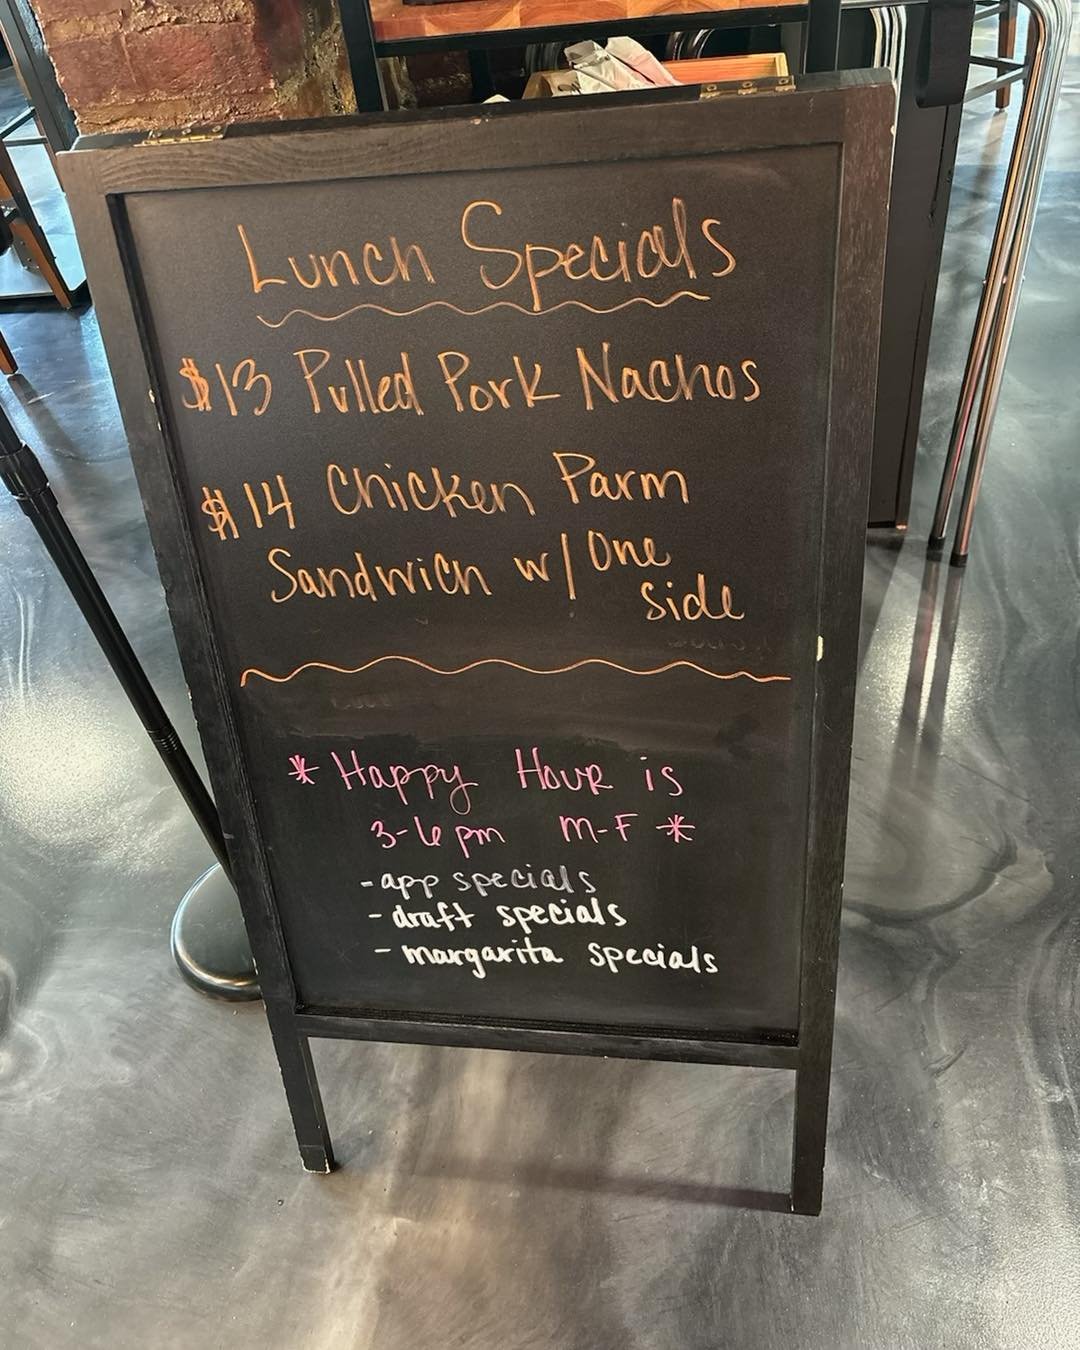 Lunch Specials
$13 Pulled Pork Nachos
$14 Chicken Parm
Sandwich w/ One
side
* Happy Hour is
3-6pm M-F *
- app specials
- draft specials
- margarita specials